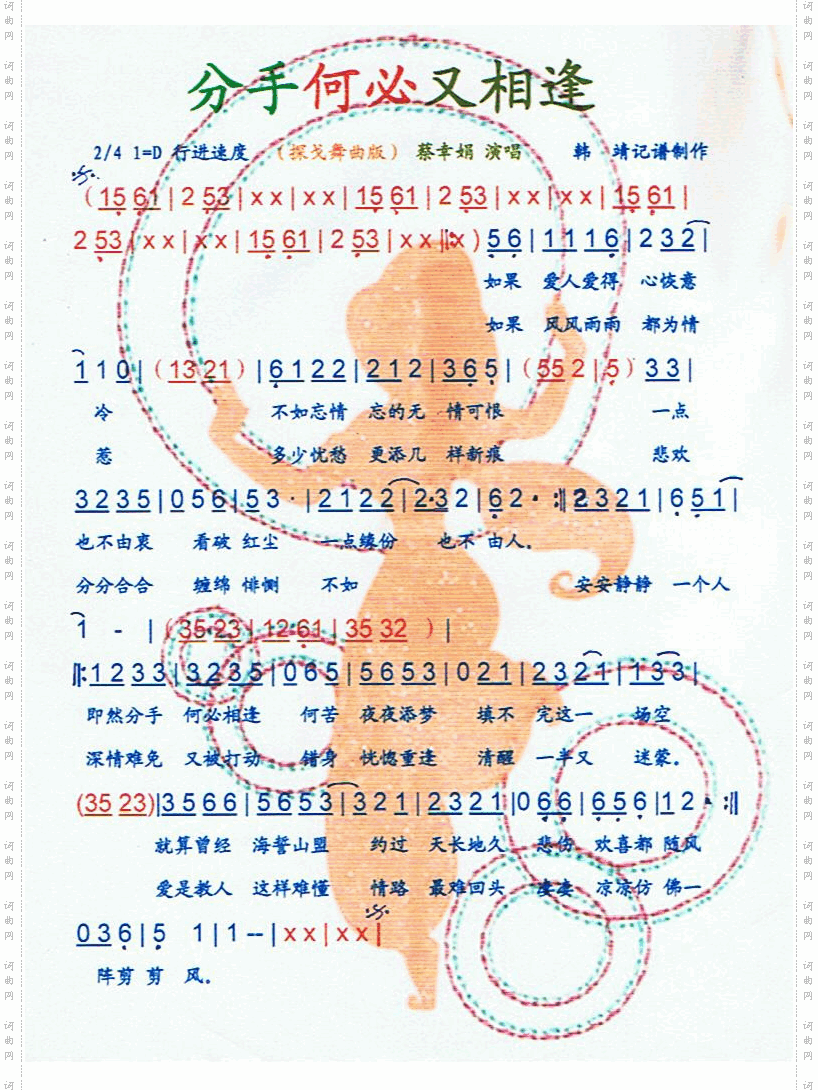 分手何必又相逢
2/4 1=D 行进速度 （探戈舞曲版） 蔡幸娟 演唱 韩 靖记谱制作
（15 61 | 2 53 | x x | x x | 15 61 | 2 53 | x x | x x | 15 61 |
2 53 | x x | x x | 15 61 | 2 53 | x x ‖: x ) 5 6 | 1 1 1 6 | 2 3 2 |
如果 爱人爱得 心恢意
如果 风风雨雨 都为情
1 1 0 | （ 13 21 ） | 6 1 2 2 | 2 1 2 | 3 6 5 | （ 55 2 | 5 ） 3 3 |
冷 不如忘情 忘的无 情可恨 一点
惹 多少忧愁 更添几 样新痕 悲欢
3 2 3 5 | 0 5 6 | 5 3 · | 2 1 2 2 | 2·3 2 | 6 2 · :‖ 2 3 2 1 | 6 5 1 |
也不由衷 看破 红尘 一点缘份 也不 由人。
分分合合 缠绵 悱恻 不如 安安静静 一个人
1 - | （ 35 23 | 12 61 | 35 32 ） |
‖: 1 2 3 3 | 3 2 3 5 | 0 6 5 | 5 6 5 3 | 0 2 1 | 2 3 2 1 | 1 3 3 |
即然分手 何必相逢 何苦 夜夜添梦 填不 完这一 场空
深情难免 又被打动 错身 恍惚重逢 清醒 一半又 迷蒙。
(35 23) | 3 5 6 6 | 5 6 5 3 | 3 2 1 | 2 3 2 1 | 0 6 6 | 6 5 6 | 1 2 · :‖
就算曾经 海誓山盟 约过 天长地久 悲伤 欢喜都 随风
爱是教人 这样难懂 情路 最难回头 凄凄 凉凉仿 佛一
0 3 6 | 5 1 | 1 -- | x x | x x |
阵剪 剪 风。
词曲网